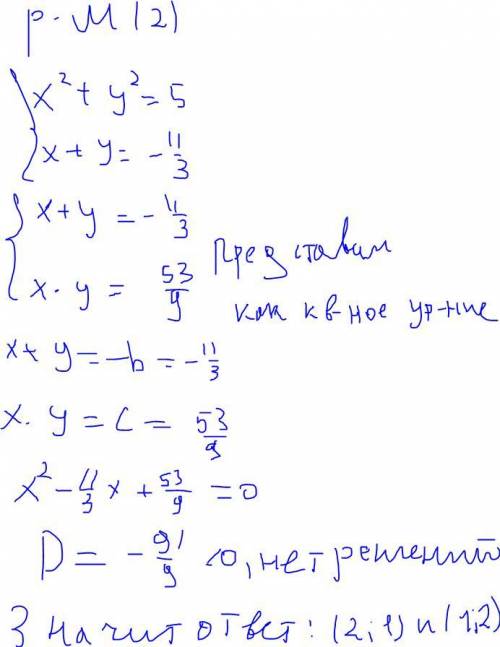 р-м (2)
x² + y² = 5
x + y = -11/3
x + y = -11/3
x · y = 53/9 Представим
как кв-ное ур-ние
x + y = -b = -11/3
x · y = c = 53/9
x² - 11/3 x + 53/9 = 0
D = -91/9 <0, нет решений
Значит ответ: (2;1) и (1;2)